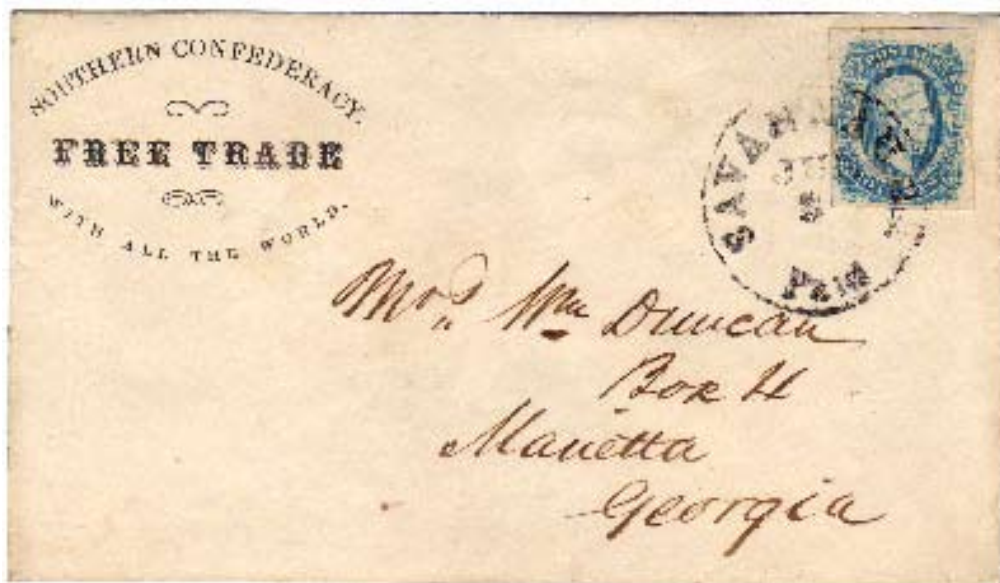 SOUTHERN CONFEDERACY.
FREE TRADE
WITH ALL THE WORLD.
SAVANNAH
PAID
Mrs. Wm Duncan
Box H
Marietta
Georgia